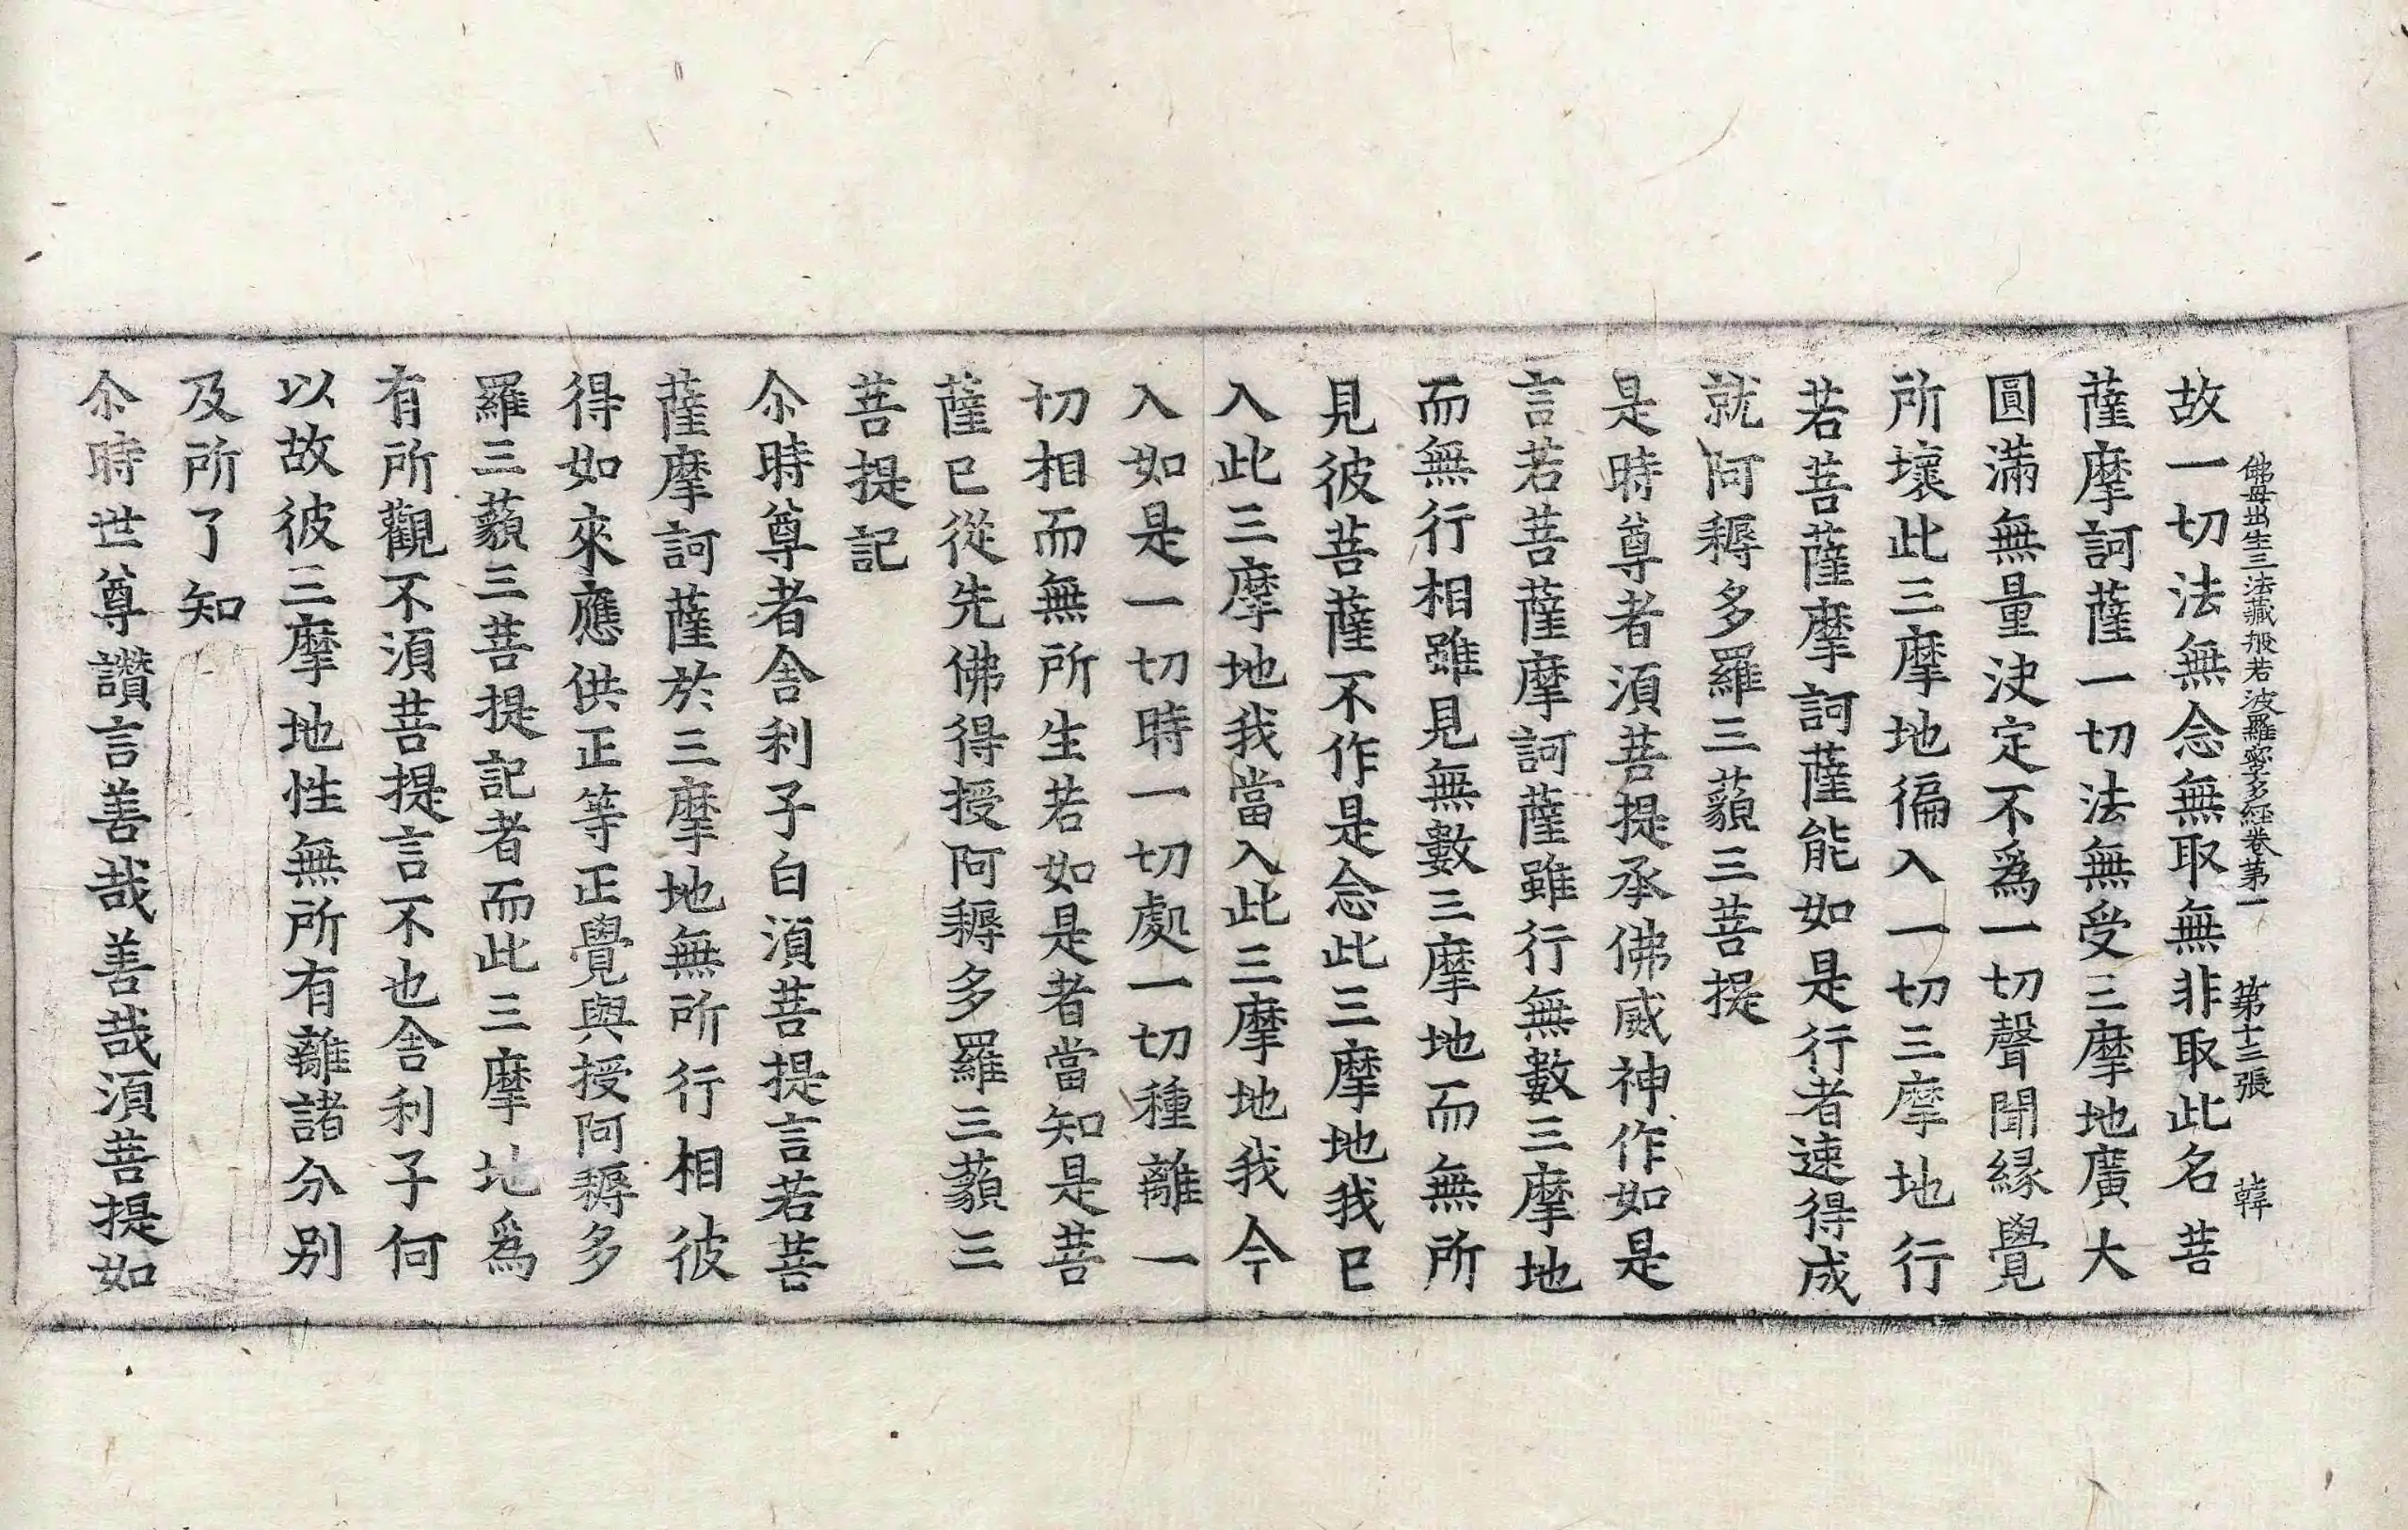 佛母出生三法藏般若波羅蜜多經卷第一 第十三張 韓
故一切法無念無取無非取此名菩
薩摩訶薩一切法無受三摩地廣大
圓滿無量決定不爲一切聲聞緣覺
所壞此三摩地徧入一切三摩地行
若菩薩摩訶薩能如是行者速得成
就阿耨多羅三藐三菩提
是時尊者湏菩提承佛威神作如是
言若菩薩摩訶薩雖行無數三摩地
而無行相雖見無數三摩地而無所
見彼菩薩不作是念此三摩地我已
入此三摩地我當入此三摩地我今
入如是一切時一切處一切種離一
切相而無所生若如是者當知是菩
薩已從先佛得授阿耨多羅三藐三
菩提記
尒時尊者舍利子白湏菩提言若菩
薩摩訶薩於三摩地無所行相彼
得如來應供正等正覺與授阿耨多
羅三藐三菩提記者而此三摩地爲
有所觀不湏菩提言不也舍利子何
以故彼三摩地性無所有離諸分别
及所了知
尒時世尊讚言善哉善哉湏菩提如